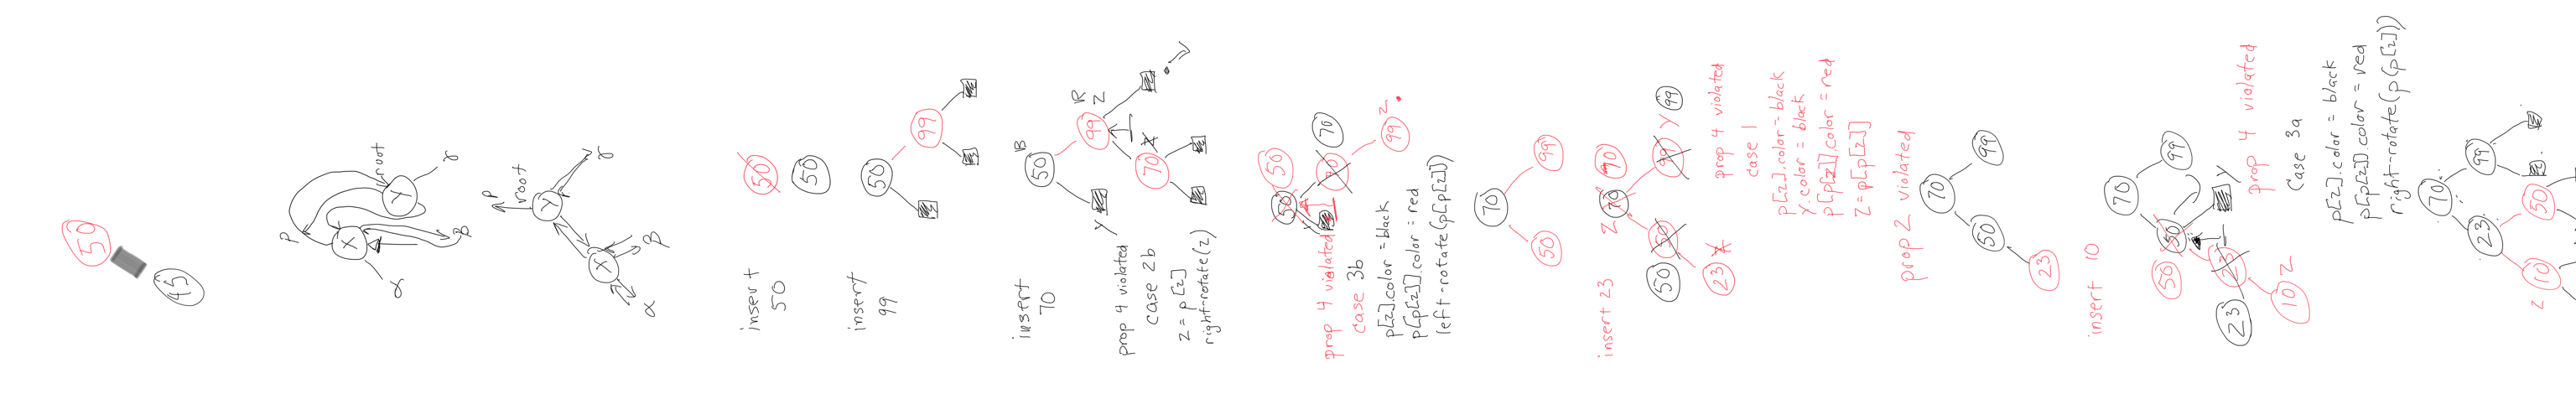 50
45
P
root
Y
γ
X
β
α
P
root
Y
γ
X
β
α
insert
50
50
50
insert
99
50
99
insert
70
B
50
R
Z
99
70
Y
prop 4 violated
case 2b
z = p[z]
right-rotate(z)
50
50
70
70
99
Z
prop 4 violated
case 3b
p[z].color = black
p[p[z]].color = red
left-rotate(p[p[z]])
70
99
50
insert 23
70
70
Z
99
Y
99
50
50
23
Z
prop 4 violated
case 1
p[z].color = black
Y.color = black
p[p[z]].color = red
Z = p[p[z]]
prop 2 violated
70
99
50
23
insert 10
70
99
50
50
Y
23
23
10
Z
prop 4 violated
Case 3a
p[z].color = black
p[p[z]].color = red
right-rotate(p[p[z]])
70
99
23
50
10
Z